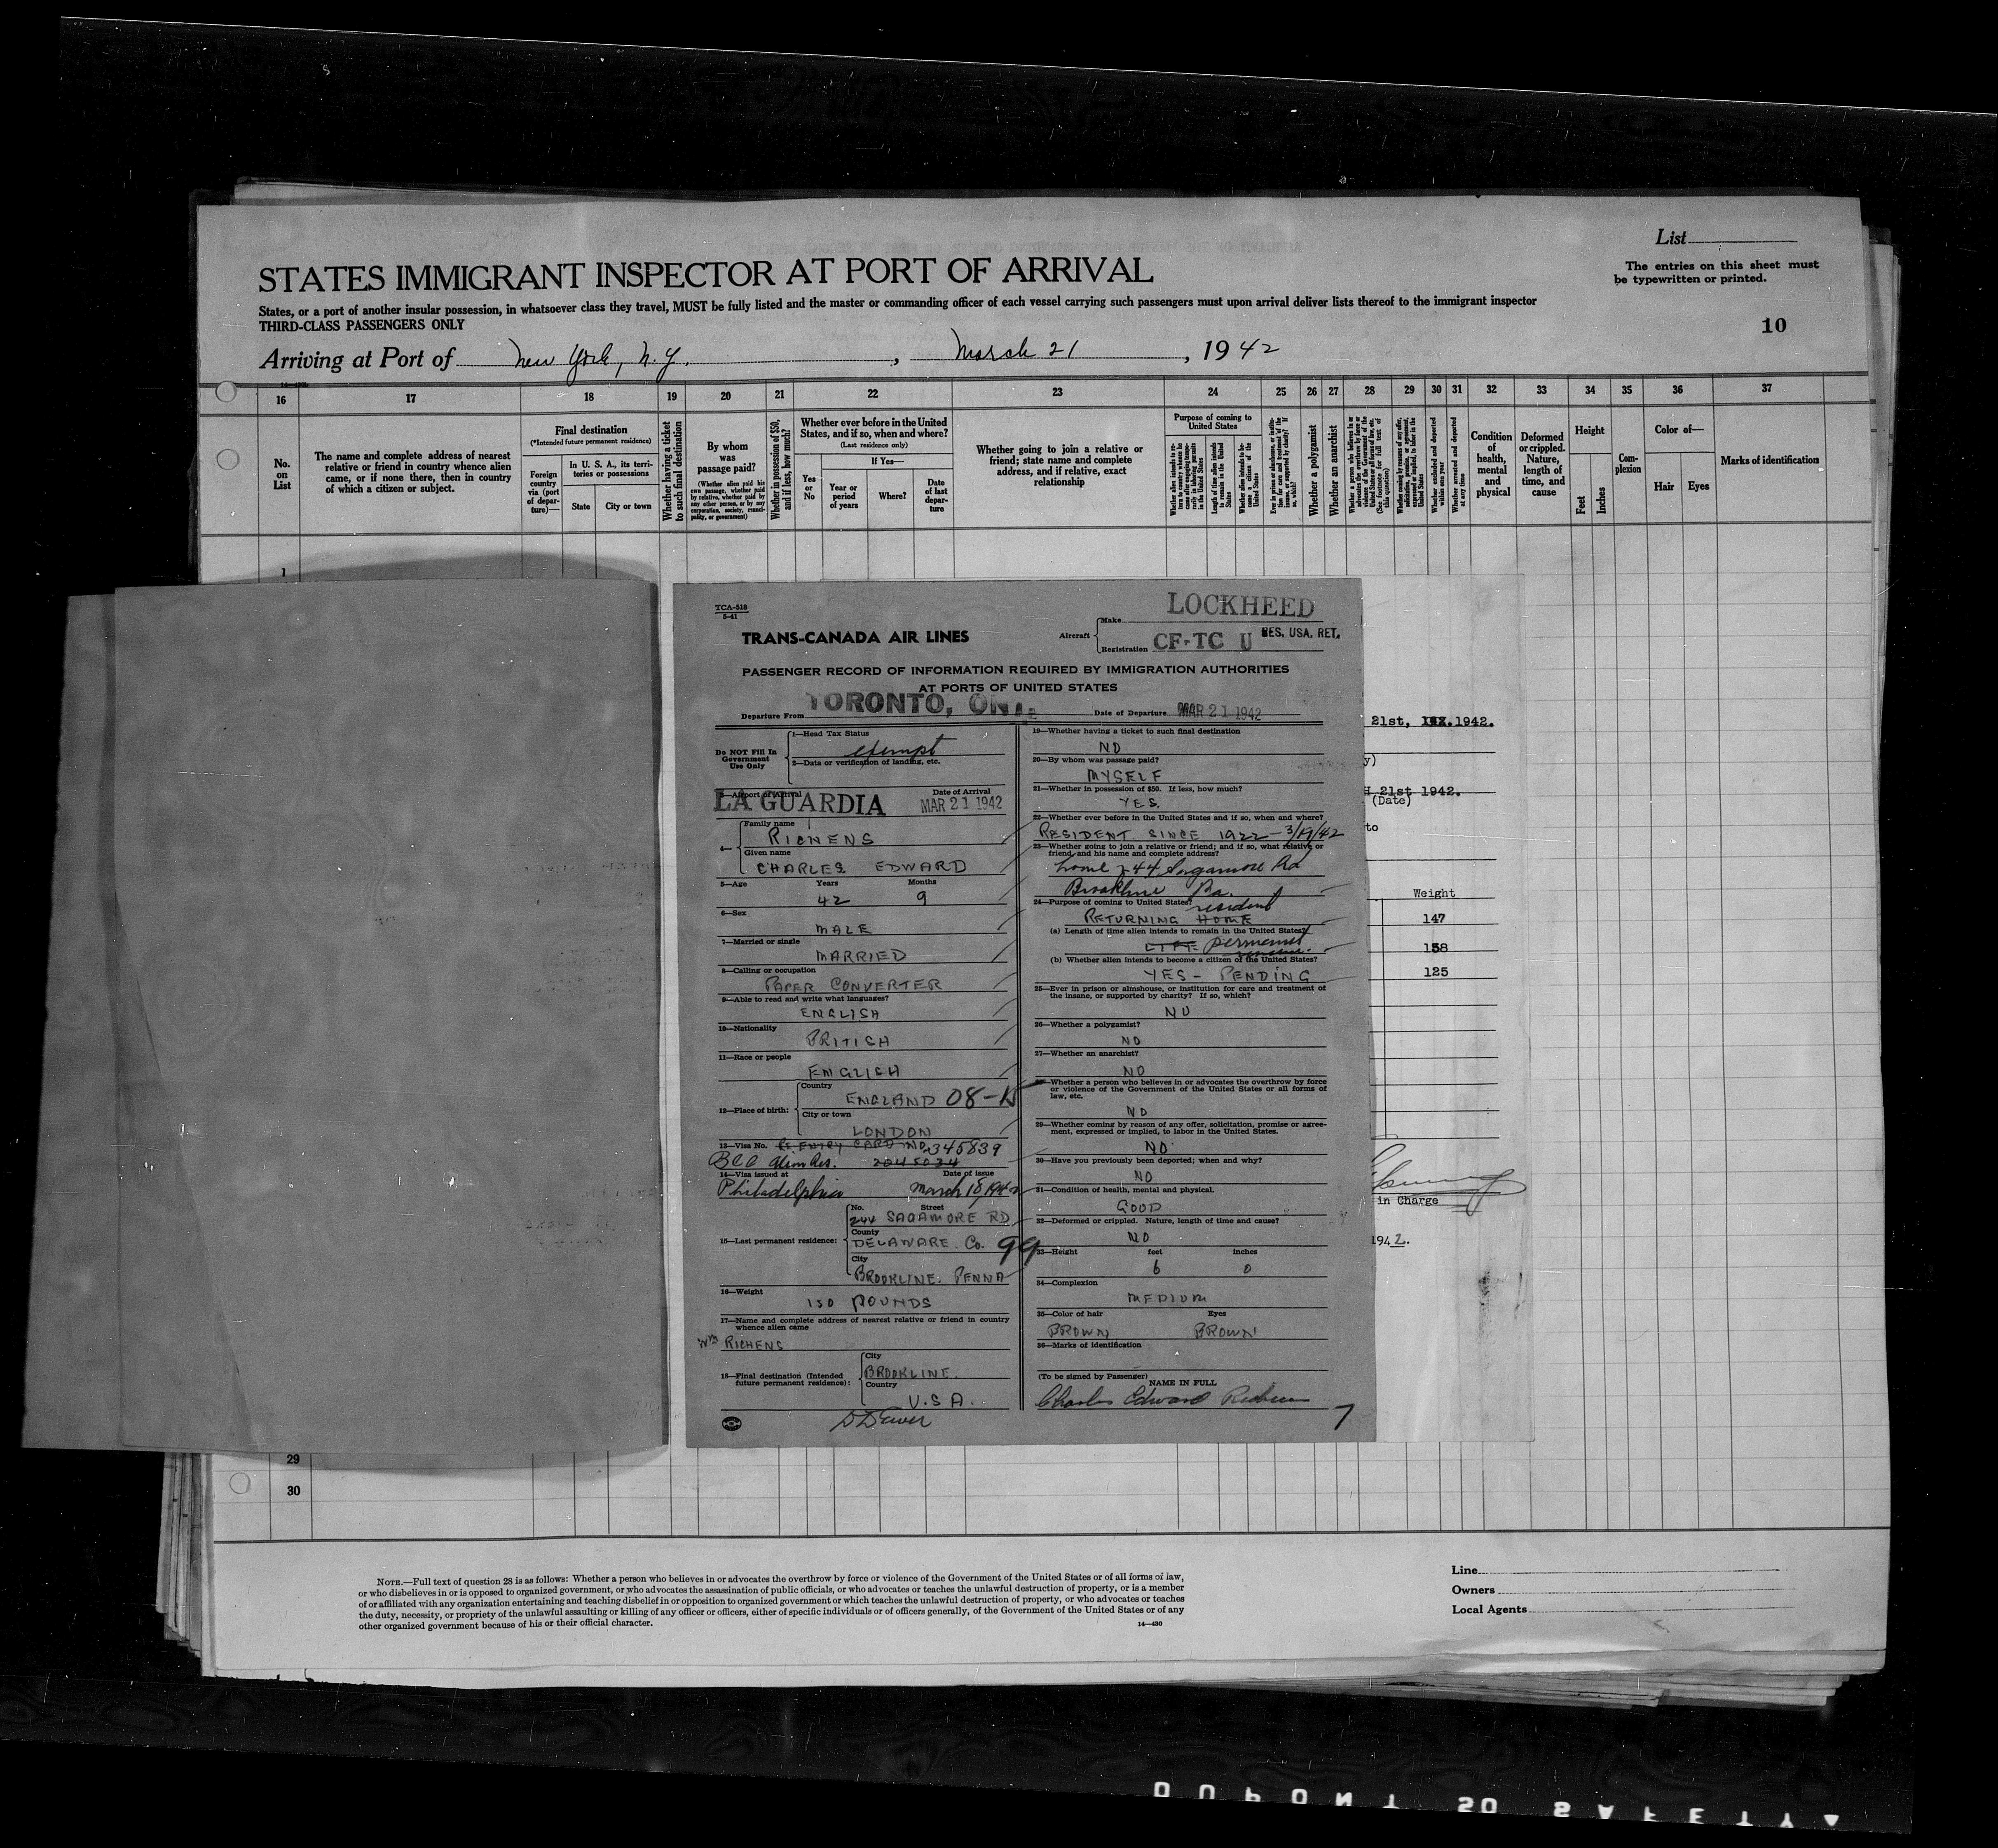 List
STATES IMMIGRANT INSPECTOR AT PORT OF ARRIVAL
The entries on this sheet must
be typewritten or printed.
States, or a port of another insular possession, in whatsoever class they travel, MUST be fully listed and the master or commanding officer of each vessel carrying such passengers must upon arrival deliver lists thereof to the immigrant inspector
THIRD-CLASS PASSENGERS ONLY
10
Arriving at Port of New York, N.Y., March 21, 1942
16 17 18 19 20 21 22 23 24 25 26 27 28 29 30 31 32 33 34 35 36 37
No. on List
The name and complete address of nearest relative or friend in country whence alien came, or if none there, then in country of which a citizen or subject.
Final destination
(*Intended future permanent residence)
Foreign country via (port of departure)—
In U. S. A., its territories or possessions
State
City or town
Whether having a ticket to such final destination
By whom was passage paid?
(Whether alien paid his own passage, whether paid by relative, whether paid by any other person, or by any corporation, society, municipality, or government)
Whether in possession of $50, and if less, how much?
Whether ever before in the United States, and if so, when and where?
(Last residence only)
Yes or No
If Yes—
Year or period of years
Where?
Date of last departure
Whether going to join a relative or friend; state name and complete address, and if relative, exact relationship
Purpose of coming to United States
Whether a polygamist
Whether an anarchist
Condition of health, mental and physical
Deformed or crippled. Nature, length of time, and cause
Height
Feet
Inches
Complexion
Color of—
Hair
Eyes
Marks of identification
1
TCA-518
5-41
TRANS-CANADA AIR LINES
Aircraft
Make LOCKHEED
Registration CF-TC U
RES. USA. RET.
PASSENGER RECORD OF INFORMATION REQUIRED BY IMMIGRATION AUTHORITIES
AT PORTS OF UNITED STATES
Departure From TORONTO, ONT.
Date of Departure MAR 21 1942
Do NOT Fill In
Government
Use Only
1—Head Tax Status
exempt
2—Data or verification of landing, etc.
3—Airport of Arrival
LA GUARDIA
Date of Arrival
MAR 21 1942
4—
Family name
RICHENS
Given name
CHARLES EDWARD
5—Age Years Months
42 9
6—Sex
MALE
7—Married or single
MARRIED
8—Calling or occupation
PAPER CONVERTER
9—Able to read and write what languages?
ENGLISH
10—Nationality
BRITISH
11—Race or people
ENGLISH
12—Place of birth:
Country
ENGLAND 08-
City or town
LONDON
13—Visa No. RE ENTRY CARD NO. 2345839
BCC Alien Res.
14—Visa issued at Date of issue
Philadelphia March 18, 1942
15—Last permanent residence:
No. Street
244 SAGAMORE RD
County
DELAWARE. Co. 99
City
BROOKLINE. PENNA
16—Weight
150 POUNDS
17—Name and complete address of nearest relative or friend in country
whence alien came
Wm RICHENS
18—Final destination (Intended
future permanent residence):
City
BROOKLINE.
Country
U.S.A.
19—Whether having a ticket to such final destination
NO
20—By whom was passage paid?
MYSELF
21—Whether in possession of $50. If less, how much?
YES.
22—Whether ever before in the United States and if so, when and where?
RESIDENT SINCE 1922 - 3/19/42
23—Whether going to join a relative or friend; and if so, what relative or
friend, and his name and complete address?
home 244 Sagamore Rd
Brookline Pa.
24—Purpose of coming to United States?
resident
RETURNING HOME
(a) Length of time alien intends to remain in the United States?
LIFE permanent
(b) Whether alien intends to become a citizen of the United States?
YES - PENDING
25—Ever in prison or almshouse, or institution for care and treatment of
the insane, or supported by charity? If so, which?
NO
26—Whether a polygamist?
NO
27—Whether an anarchist?
NO
28—Whether a person who believes in or advocates the overthrow by force
or violence of the Government of the United States or all forms of
law, etc.
NO
29—Whether coming by reason of any offer, solicitation, promise or agreement, expressed or implied, to labor in the United States.
NO
30—Have you previously been deported; when and why?
NO
31—Condition of health, mental and physical.
GOOD
32—Deformed or crippled. Nature, length of time and cause?
NO
33—Height feet inches
6 0
34—Complexion
MEDIUM
35—Color of hair Eyes
BROWN BROWN
36—Marks of identification
(To be signed by Passenger)
NAME IN FULL
Charles Edward Richens
7
21st, 1942.
y)
H 21st 1942.
(Date)
to
Weight
147
138
125
in Charge
1942.
29
30
NOTE.—Full text of question 28 is as follows: Whether a person who believes in or advocates the overthrow by force or violence of the Government of the United States or of all forms of law,
or who disbelieves in or is opposed to organized government, or who advocates the assassination of public officials, or who advocates or teaches the unlawful destruction of property, or is a member
of or affiliated with any organization entertaining and teaching disbelief in or opposition to organized government or which teaches the unlawful destruction of property, or who advocates or teaches
the duty, necessity, or propriety of the unlawful assaulting or killing of any officer or officers, either of specific individuals or of officers generally, of the Government of the United States or of any
other organized government because of his or their official character.
14—430
Line
Owners
Local Agents
DUPONT SO SAFETY